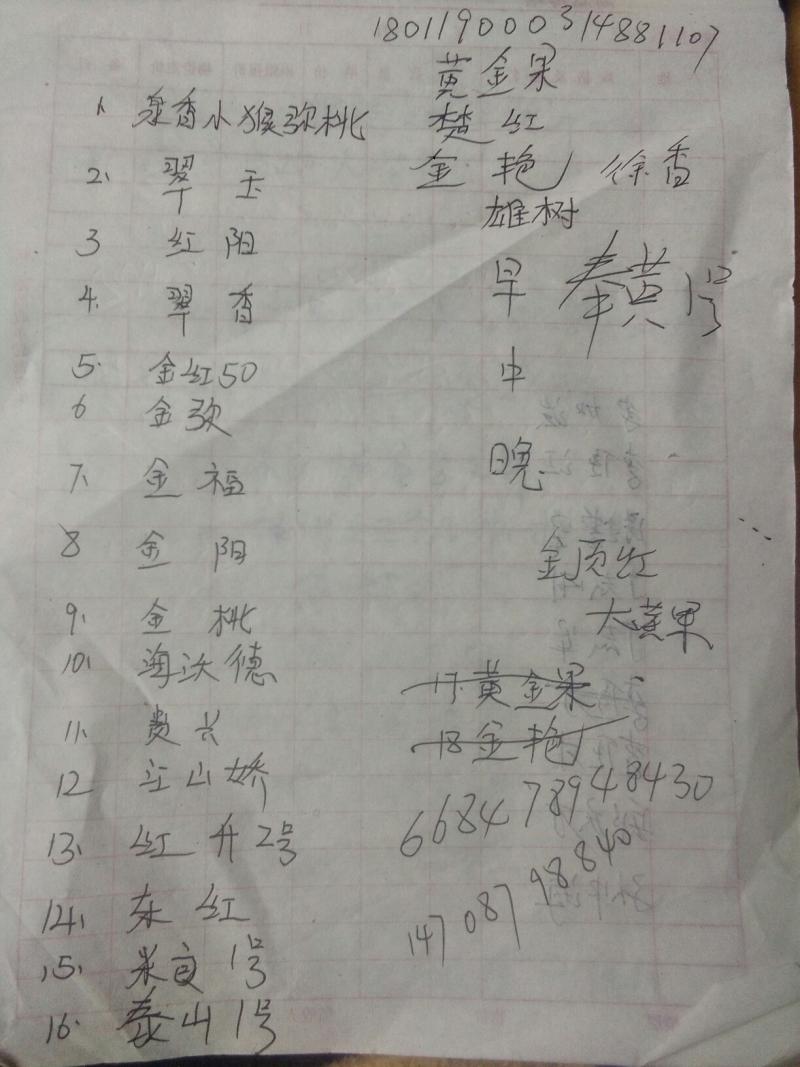 180119000314881107
黄金果
1、泉香小猴弥桃
楚红
2、翠玉
金艳 徐香
雄树
3 红阳
早 秦黄1号
4. 翠香
5. 金红50
中
6 金弥
7、金福
晚
8 金阳
金顶红
9. 金桃
大黄果
10、海沃德
17.黄金果
11、贵长
18金艳
12 江山娇
66847894 8430
13. 红升2号
14708798840
14、东红
15. 米良1号
16. 泰山1号